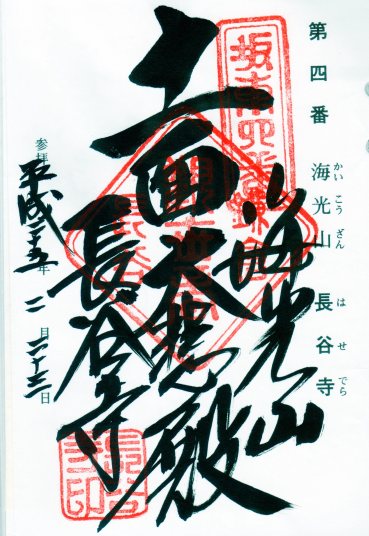 第四番 海光山 長谷寺
かいこうざん はせでら
坂東四番鎌倉
海光山
十一面大悲殿
長谷寺
参拝 平成二十五年 二月二十三日